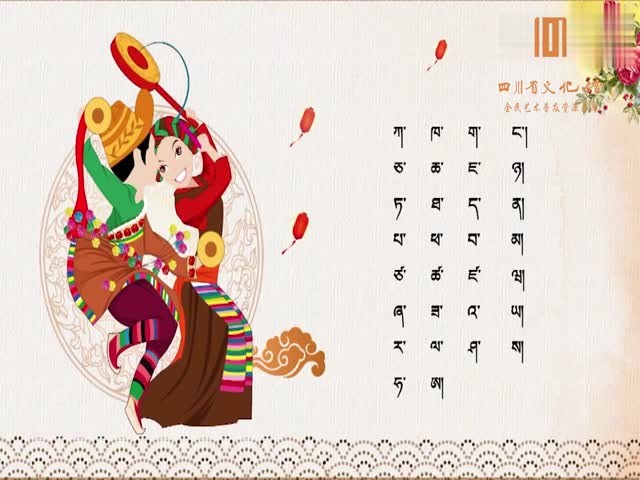 四川省文化
全民艺术普及资源
ཀ་ ཁ་ ག་ ང་།
ཅ་ ཆ་ ཇ་ ཉ།
ཏ་ ཐ་ ད་ ན།
པ་ ཕ་ བ་ མ།
ཙ་ ཚ་ ཛ་ ཝ།
ཞ་ ཟ་ འ་ ཡ།
ར་ ལ་ ཤ་ ས།
ཧ་ ཨ།